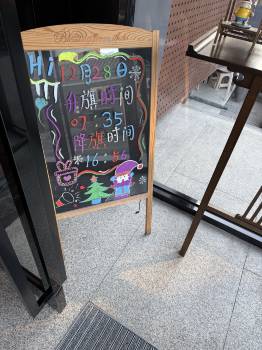 Hi 12月28日
升旗时间
07:35
降旗时间
16:56